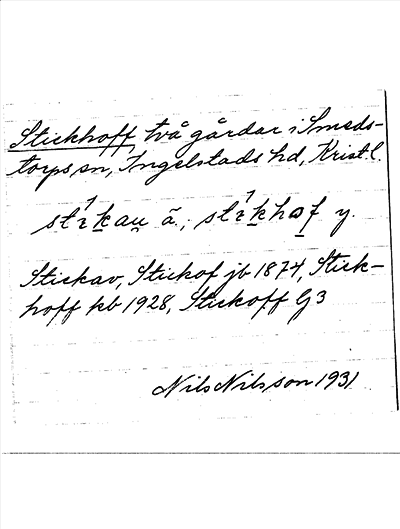 Stickhoff, två gårdar i Smeds-
torps sn, Ingelstads hd, Krist. l.
stı̇́kau̯ ä.; stı̇́khɷf y.
Stickav, Stickof jb 1874, Stick-
hoff kb 1928, Stickoff G 3
Nils Nilsson 1931